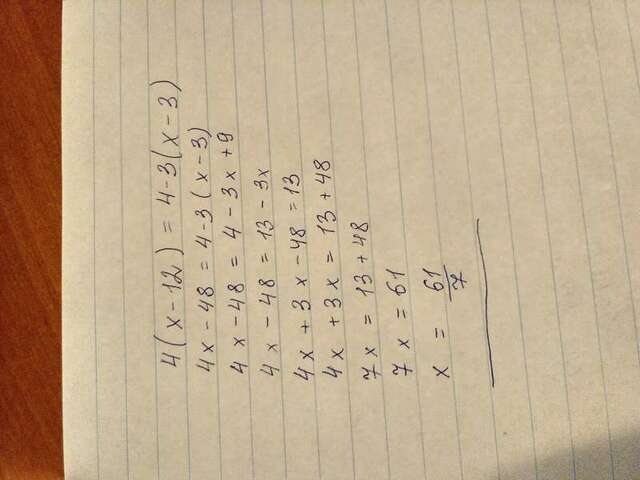 4(x-12) = 4-3(x-3)
4x-48 = 4-3(x-3)
4x-48 = 4-3x+9
4x-48 = 13-3x
4x+3x-48 = 13
4x+3x = 13+48
7x = 13+48
7x = 61
x = 61/7